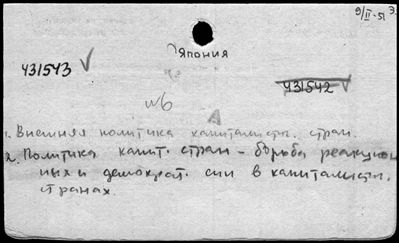 9/II-51
Япония
431543
431542
1. Внешняя политика капиталист. стран.
2. Политика капит. стран – борьба реакцион
ных и демократ. сил в капиталист.
странах.